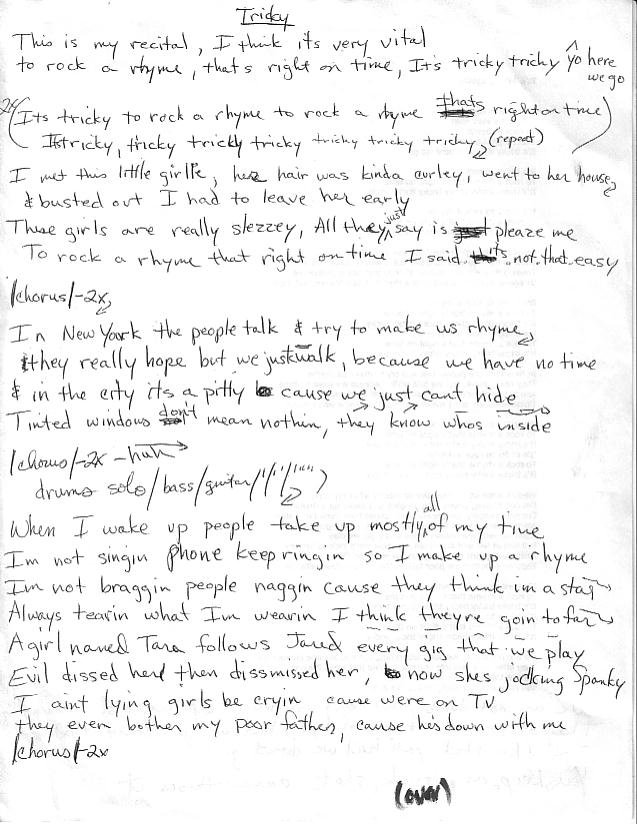 Tricky
This is my recital, I think its very vital
to rock a rhyme, thats right on time, It's tricky tricky yo here we go
2x (Its tricky to rock a rhyme to rock a rhyme thats right on time)
Itstricky, tricky tricky tricky tricky tricky tricky, (repeat)
I met this little girlie, her hair was kinda curley, went to her house,
& busted out I had to leave her early
These girls are really slezzey, All they just say is pleaze me
To rock a rhyme that right on time I said its not that easy
/chorus/-2x,
In New York the people talk & try to make us rhyme,
they really hope but we just walk, because we have no time
& in the city its a pitty cause we just cant hide
Tinted windows don't mean nothin, they know whos inside
/chorus/-2x -huh
drums solo/bass/guitar/
When I wake up people take up mostly all of my time
Im not singin phone keep ringin so I make up a rhyme
Im not braggin people naggin cause they think im a star
Always tearin what Im wearin I think theyre goin to far
A girl named Tara follows Jared every gig that we play
Evil dissed her then dissmissed her, now shes jocking Spanky
I aint lying girls be cryin cause were on TV
they even bother my poor father, cause hes down with me
/chorus/-2x
(over)